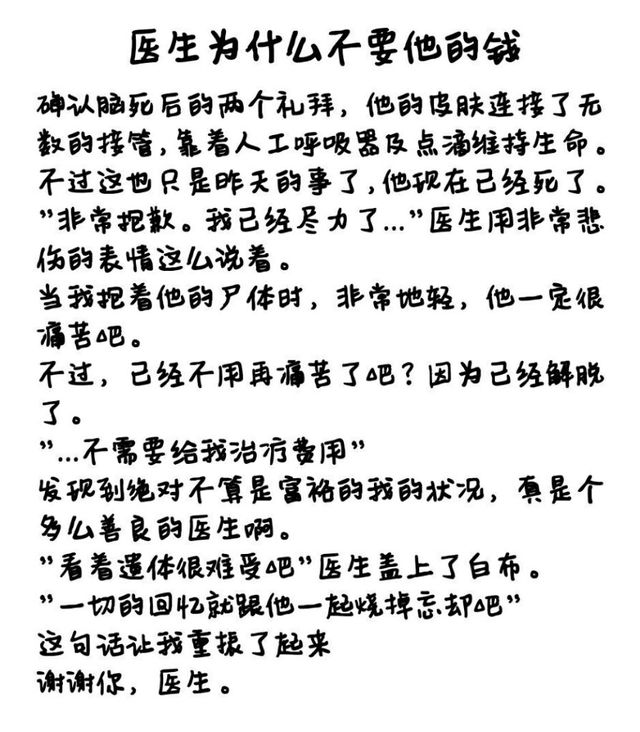 医生为什么不要他的钱
确认脑死后的两个礼拜，他的皮肤连接了无
数的接管,靠着人工呼吸器及点滴维持生命。
不过这也只是昨天的事了,他现在已经死了。
”非常抱歉。我已经尽力了...”医生用非常悲
伤的表情这么说着。
当我抱着他的尸体时，非常地轻，他一定很
痛苦吧。
不过，已经不用再痛苦了吧？因为已经解脱
了。
”...不需要给我治疗费用”
发现到绝对不算是富裕的我的状况，真是个
多么善良的医生啊。
”看着遗体很难受吧”医生盖上了白布。
”一切的回忆就跟他一起烧掉忘却吧”
这句话让我重振了起来
谢谢你，医生。